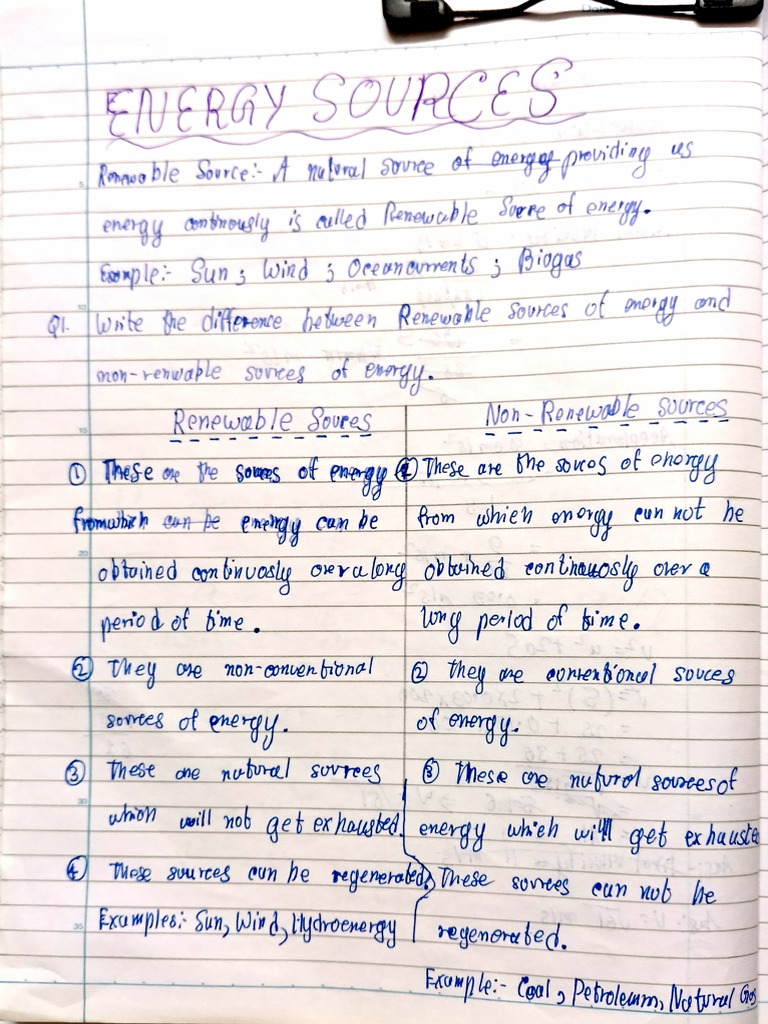 ENERGY SOURCES
Renewable Source:- A natural source of energy providing us
energy continously is called Renewable Sorre of energy.
Example:- Sun ; Wind ; Oceancurrents ; Biogas
Q1. Write the difference between Renewable sources of energy and
non-renwable sources of energy.
Renewable Souces
① These are the souces of energy
fromwhich can be energy can be
obtained continuosly over a long
period of time.
② They are non-conventional
sources of energy.
③ These are natural sources
which will not get exhausted.
④ These sources can be regenerated.
Examples:- Sun, Wind, Hydroenergy
Non-Renewable Sources
① These are the souces of energy
from which energy can not be
obtained continuosly over a
long period of time.
② they are conventional souces
of energy.
③ These are natural sources of
energy which will get exhauste
These sources can not be
regenerated.
Example:- Coal, Petroleum, Natural Gas